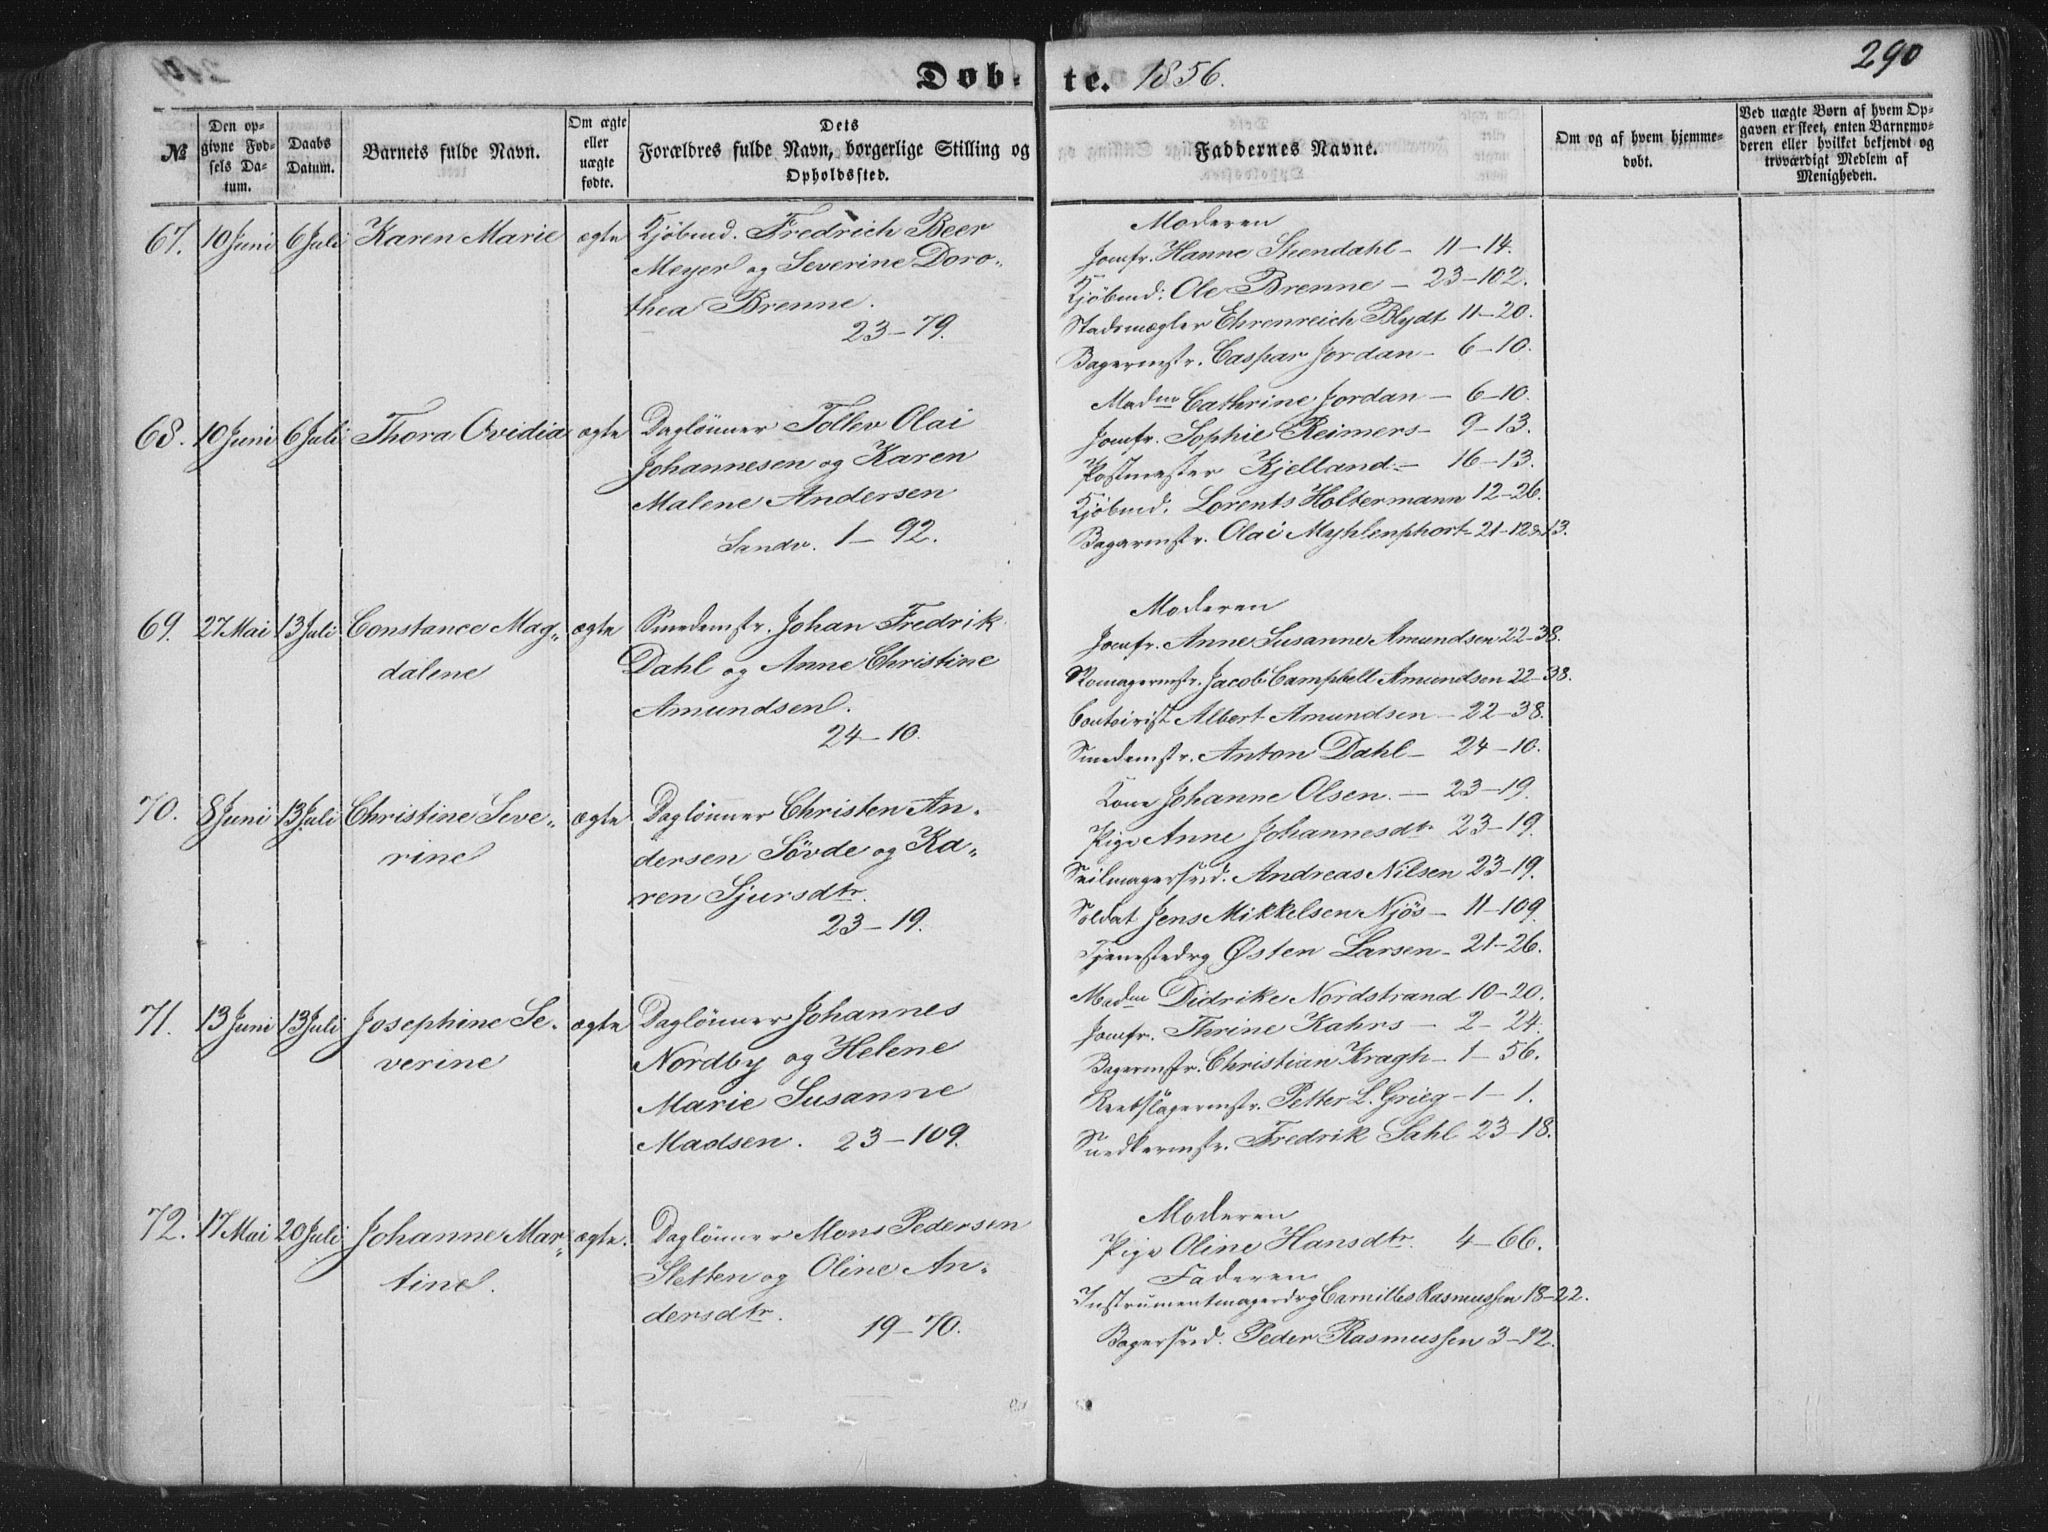 290
Døbte. 1856.
№
Den op-
givne Fød-
sels Da-
tum.
Daabs
Datum.
Barnets fulde Navn.
Om ægte
eller
uægte
fødte.
Dets
Forældres fulde Navn, borgerlige Stilling og
Opholdssted.
Faddernes Navne.
Om og af hvem hjemme-
døbt.
Ved uægte Børn af hvem Op-
gaven er skeet, enten Barnemo-
deren eller hvilket bekjendt og
troværdigt Medlem af
Menigheden.
67. 10 Juni 6 Juli Karen Marie ægte Kjøbmd. Fredrich Beer
Meyer og Severine Doro„
thea Brenne.
23–79.
Moderen
Jomfr. Hanne Steendahl – 11–14.
Kjøbmd: Ole Brenne – 23–102.
Stadsmægler Ehrenreich Blydt 11–20.
Bagermstr. Caspar Jordan – 6–10.
68. 10 Juni 6 Juli Thora Ovidia ægte Daglønner Tollev Olai
Johannesen og Karen
Malene Andersen
Sandv. 1–92.
Madm Cathrine Jordan – 6–10.
Jomfr. Sophie Reimers – 9–13.
Postmester Kjelland – 16–13.
Kjøbmd. Lorents Holtermann 12–26.
Bagarmstr. Olai Myhlenphort – 21–12&13.
69. 27 Mai 13 Juli Constance Mag„
dalene
ægte Smedemstr. Johan Fredrik
Dahl og Anne Christine
Amundsen.
24–10.
Moderen
Jomfr. Anne Susanne Amundsen 22–38.
Romagermstr. Jacob Campbell Amundsen 22–38.
Contoirist Albert Amundsen – 22–38.
Smedemstr. Anton Dahl – 24–10.
70. 8 Juni 13 Juli Christine Seve„
rine
ægte Daglønner Christen An„
dersen Søvde og Ka„
ren Sjursdtr.
23–19.
Kone Johanne Olsen. – 23–19.
Pige Anne Johannesdtr 23–19.
Seilmagersvd. Andreas Nilsen 23–19.
Soldat Jens Mikkelsen Njøs – 11–109.
Tjenestedrg Østen Larsen – 21–26.
71. 13 Juni 13 Juli Josephine Se„
verine
ægte Daglønner Johannes
Nordby og Helene
Marie Susanne
Madsen. 23–109.
Madm Didrike Nordstrand 10–20.
Jomfr. Thrine Kahrs – 2–24.
Bagermstr. Christian Kragh – 1–56.
Reebslagermstr. Petter L. Grieg – 1–1.
Snedkermstr. Fredrik Sahl 23–18.
72. 17 Mai 20 Juli Johanne Mar„
tine.
ægte. Daglønner Mons Pedersen
Sletten og Oline An„
dersdtr.
19–70.
Moderen
Pige Oline Hansdtr. 4–66.
Faderen
Instrumentmagerdrg Carnilles Rasmussen 18–22.
Bagersvd. Peder Rasmussen 3–12.